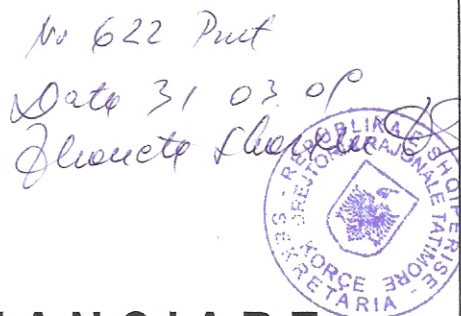 No 622 Prot
Data 31 03. 09
REPUBLIKA E SHQIPERISE
DREJTORIA RAJONALE TATIMORE
KORÇE
SEKRETARIA
ANCIARE